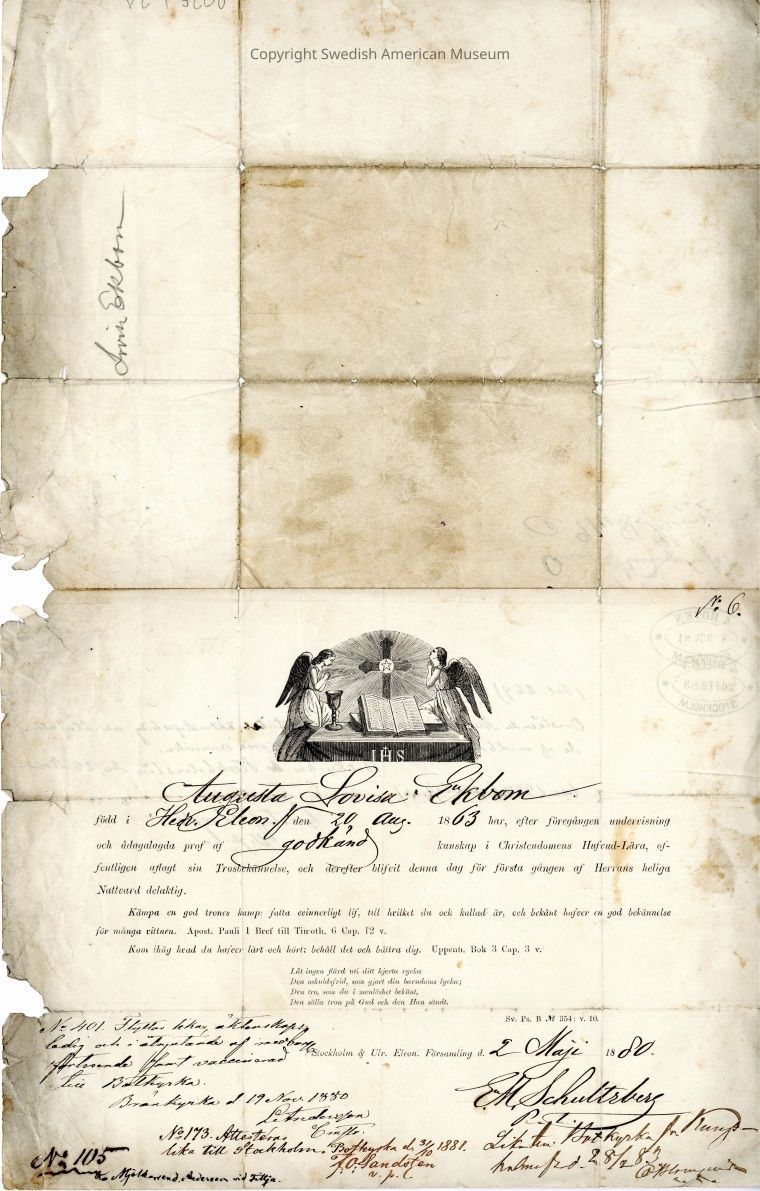 Copyright Swedish American Museum
Ekbom
№ 6.
IHS
Augusta Lovisa Ekbom
född i Hedv. Eleon. f den 20 Aug. 1863 har, efter föregången undervisning
och ådagalagda prof af godkänd kunskap i Christendomens Hufvud-Lära, of-
fentligen aflagt sin Trosbekännelse, och derefter blifvit denna dag för första gången af Herrans heliga
Nattvard delaktig.
Kämpa en god trones kamp: fatta evinnerligt lif, till hvilket du ock kallad är, och bekänt hafver en god bekännelse
för många vittnen. Apost. Pauli 1 Bref till Timoth. 6 Cap. 12 v.
Kom ihåg hvad du hafver lärt och hört: behåll det och bättra dig. Uppenb. Bok 3 Cap. 3 v.
Låt ingen flärd uti ditt hjerta rycka
Den oskuldsfrid, som gjort din barndoms lycka;
Den tro, som du i menlöshet bekänt,
Den sälla tron på Gud och den Han sändt.
Sv. Ps. B № 354: v. 10.
No 401. Flyttar lika, äktenskaps
ledig och i åtnjutande af medborg.
förtroende samt vaccinerad
till Botkyrka.
Stockholm & Ulr. Eleon. Församling d. 2 Maji 1880.
Brännkyrka d 19 Nov. 1880
Andersson
E. M. Schultzberg
No 173. Attesteras
lika till Stockholm. Botkyrka d. 31/10 1881.
J. O. Sandsten
v. p.
Lika till Botkyrka fr Kungs-
holms f. d. 28/2 83
No 105
Andersson vid Fittja.